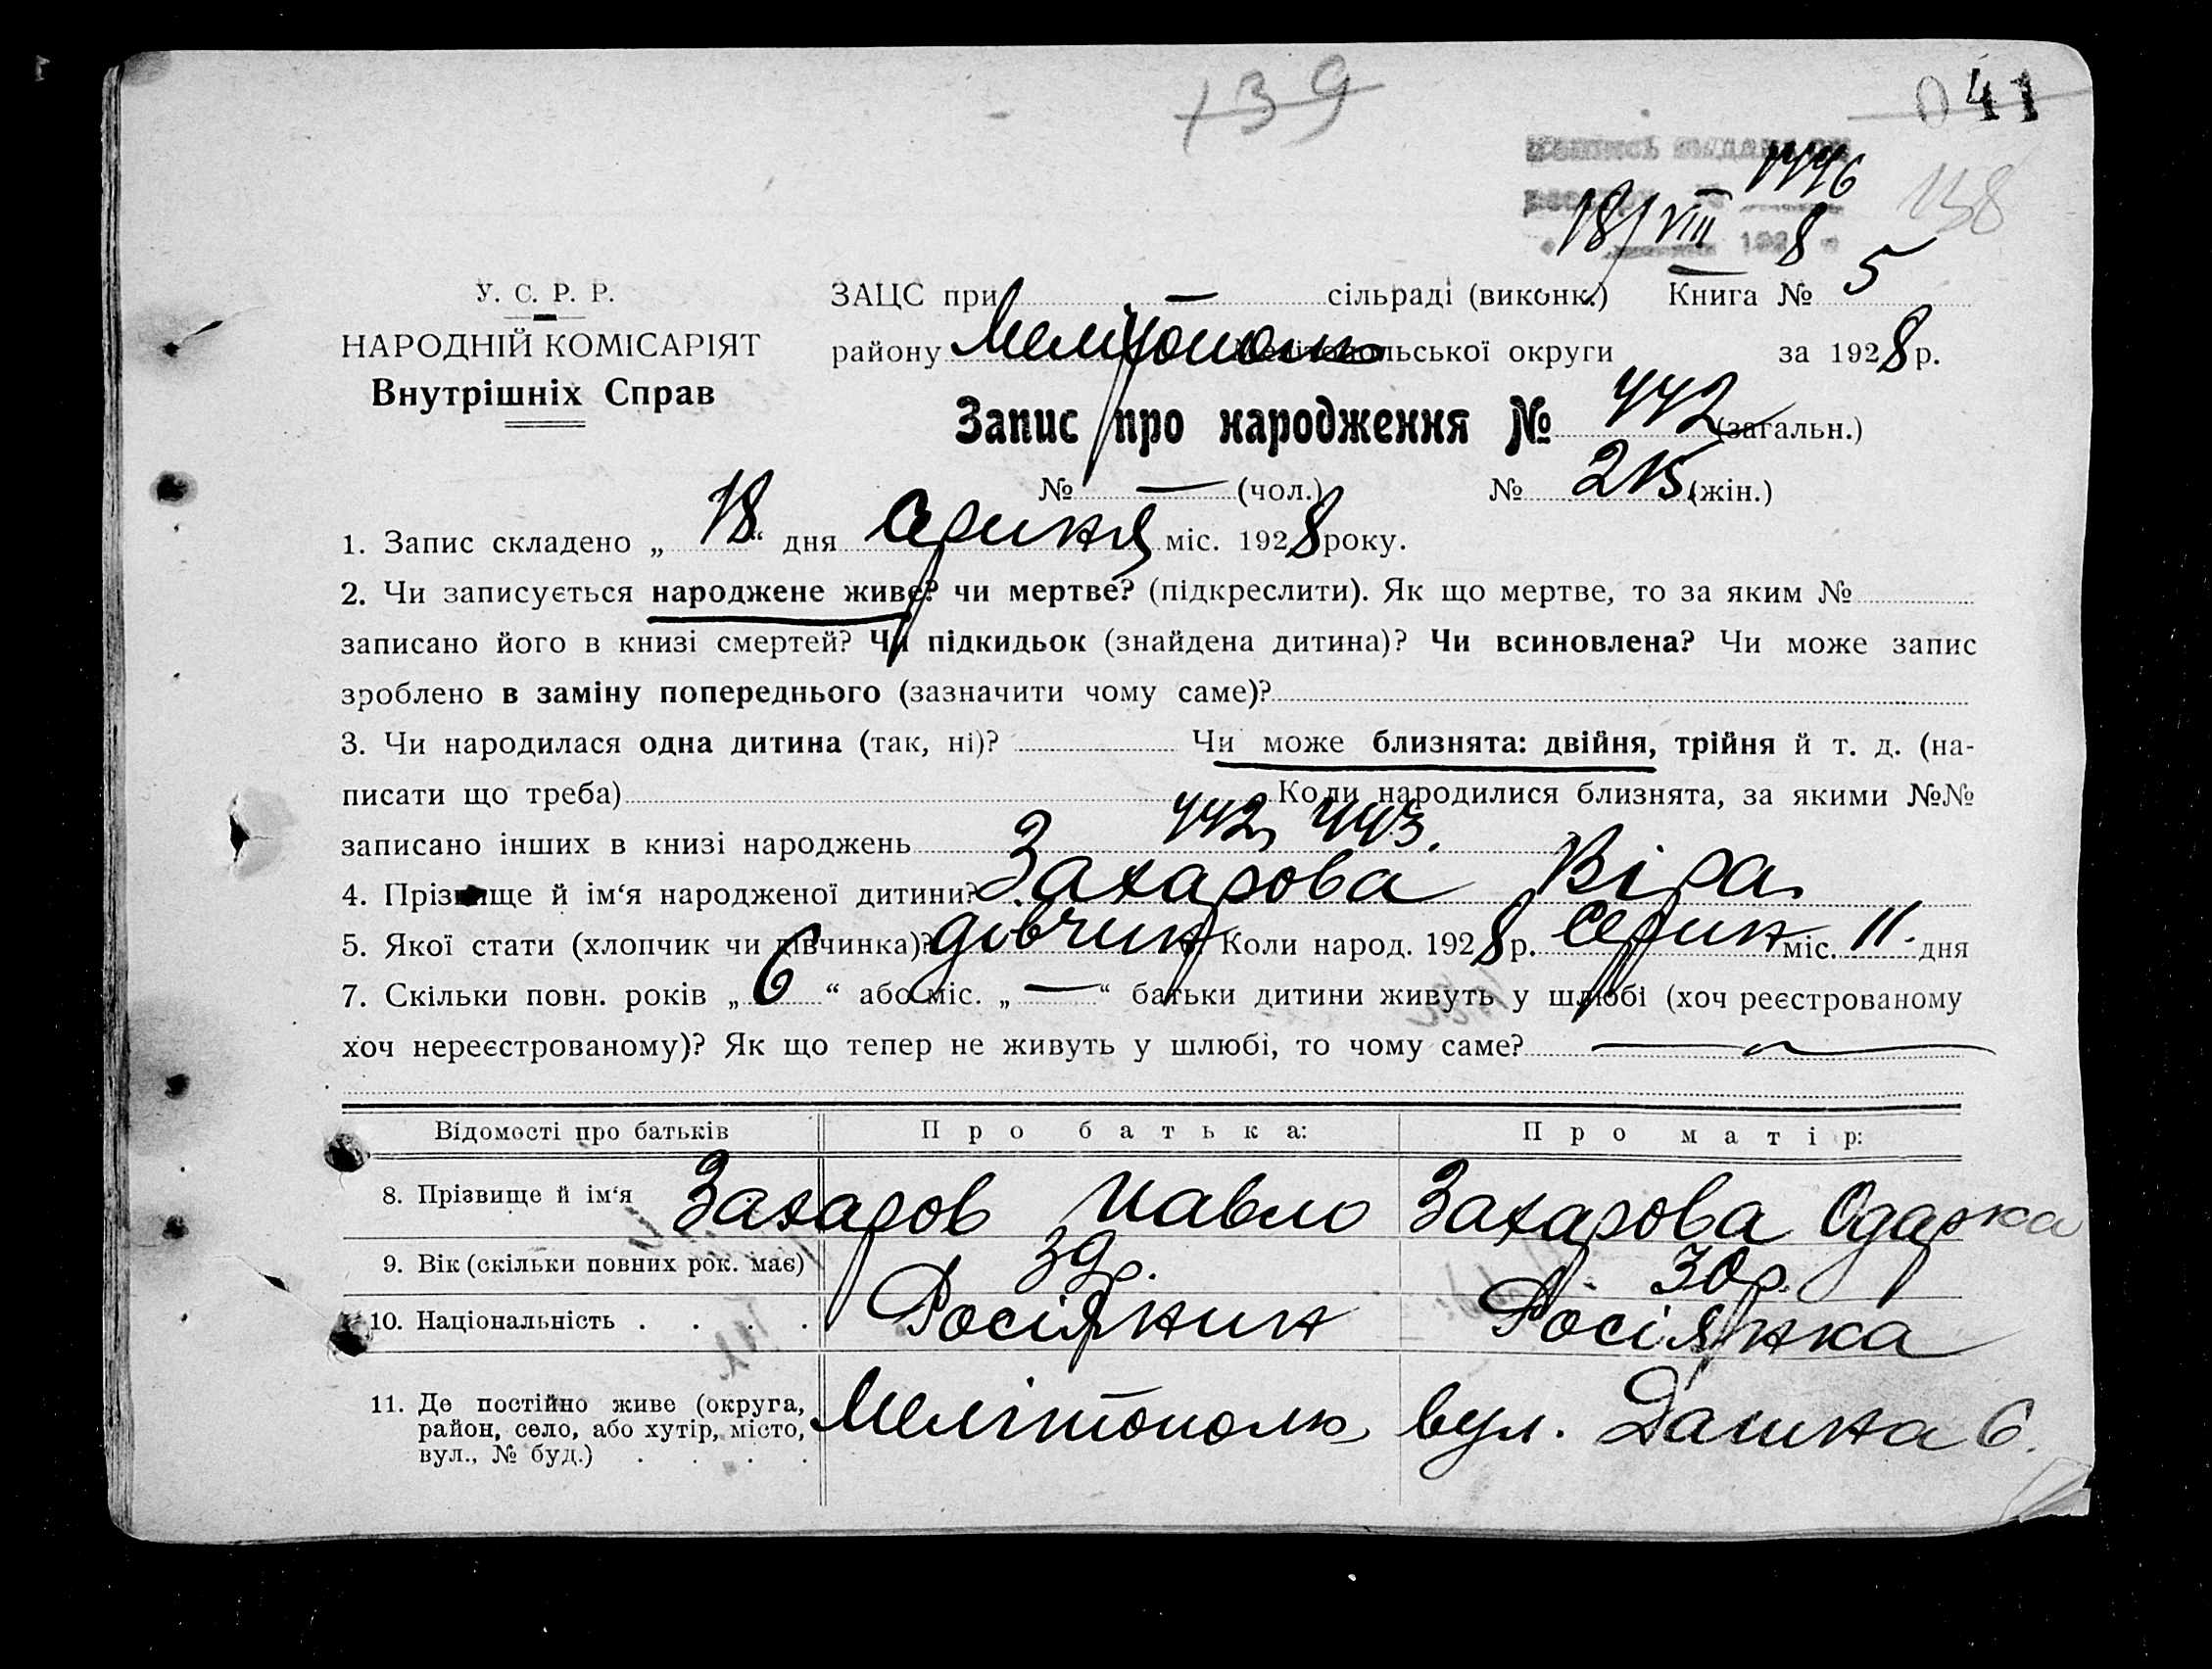 139
041
1446
138
18/VIII 1928
У. С. Р. Р.
НАРОДНІЙ КОМІСАРІЯТ
Внутрішніх Справ
ЗАЦС при — сільраді (виконк.) Книга № 5
району Мелітополь Мелітопольської округи за 1928 р.
Запис про народження № 442 (загальн.)
№ — (чол.) № 215 (жін.)
1. Запис складено „18“ дня серпня міс. 1928 року.
2. Чи записується народжене живе? чи мертве? (підкреслити). Як що мертве, то за яким №
записано його в книзі смертей? Чи підкидьок (знайдена дитина)? Чи всиновлена? Чи може запис
зроблено в заміну попереднього (зазначити чому саме)?
3. Чи народилася одна дитина (так, ні)? Чи може близнята: двійня, трійня й т. д. (на-
писати що треба) Коли народилися близнята, за якими №№
записано інших в книзі народжень 442, 443.
4. Прізвище й ім‘я народженої дитини? Захарова Віра
5. Якої стати (хлопчик чи дівчинка)? дівчин Коли народ. 1928 р. серпн міс. 11. дня
7. Скільки повн. років „6“ або міс. „—“ батьки дитини живуть у шлюбі (хоч реєстрованому
хоч нереєстрованому)? Як що тепер не живуть у шлюбі, то чому саме? —
Відомості про батьків Про батька: Про матір:
8. Прізвище й ім‘я Захаров Павло Захарова Одарка
9. Вік (скільки повних рок. має) 39 р. 30 р.
10. Національність . . . . Росіянин Росіянка
11. Де постійно живе (округа,
район, село, або хутір, місто,
вул., № буд.) . . . . Мелітополь, вул. Дашка 6.